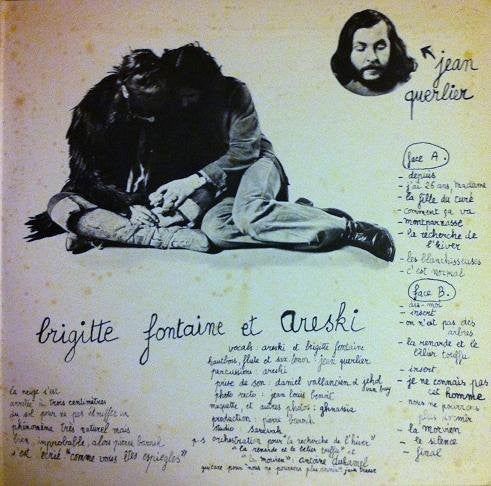 jean
querlier
face A.
- depuis
- j'ai 26 ans, madame
- la fille du curé
- comment ça va
- montparnasse
- le recherche de
l'hiver
- les blanchisseuses
- c'est normal
face B.
- dis-moi
- insert
- on n'est pas des
arbres
- la renarde et le
bélier touffu
- insert
- je ne connais pas
cet homme
nous ne pourrons
plus dormir
- la morvien
- le silence
- final
brigitte fontaine et areski
vocals : areski et brigitte fontaine
hautbois, flute et sax tenor : jean querlier
percussions : areski
prise de son : daniel vallancien et jehol
photo recto : jean louis bonnet
maquette, et autres photos : ghnassia
production : pierre barouh
studio saravah
p.s orchestration pour "la recherche de l'hiver"
"la renarde et le belier touffu" et
"la morvien" : antoine duhamel
guitare pour "nous ne pourrons plus dormir" jean
la neige s'est
arrêtée à trois centimètres
du sol pour ne pas
phénomène très naturel mais
bien improbable, alors pierre barouh
s'est écrié "comme vous êtes espiègles"